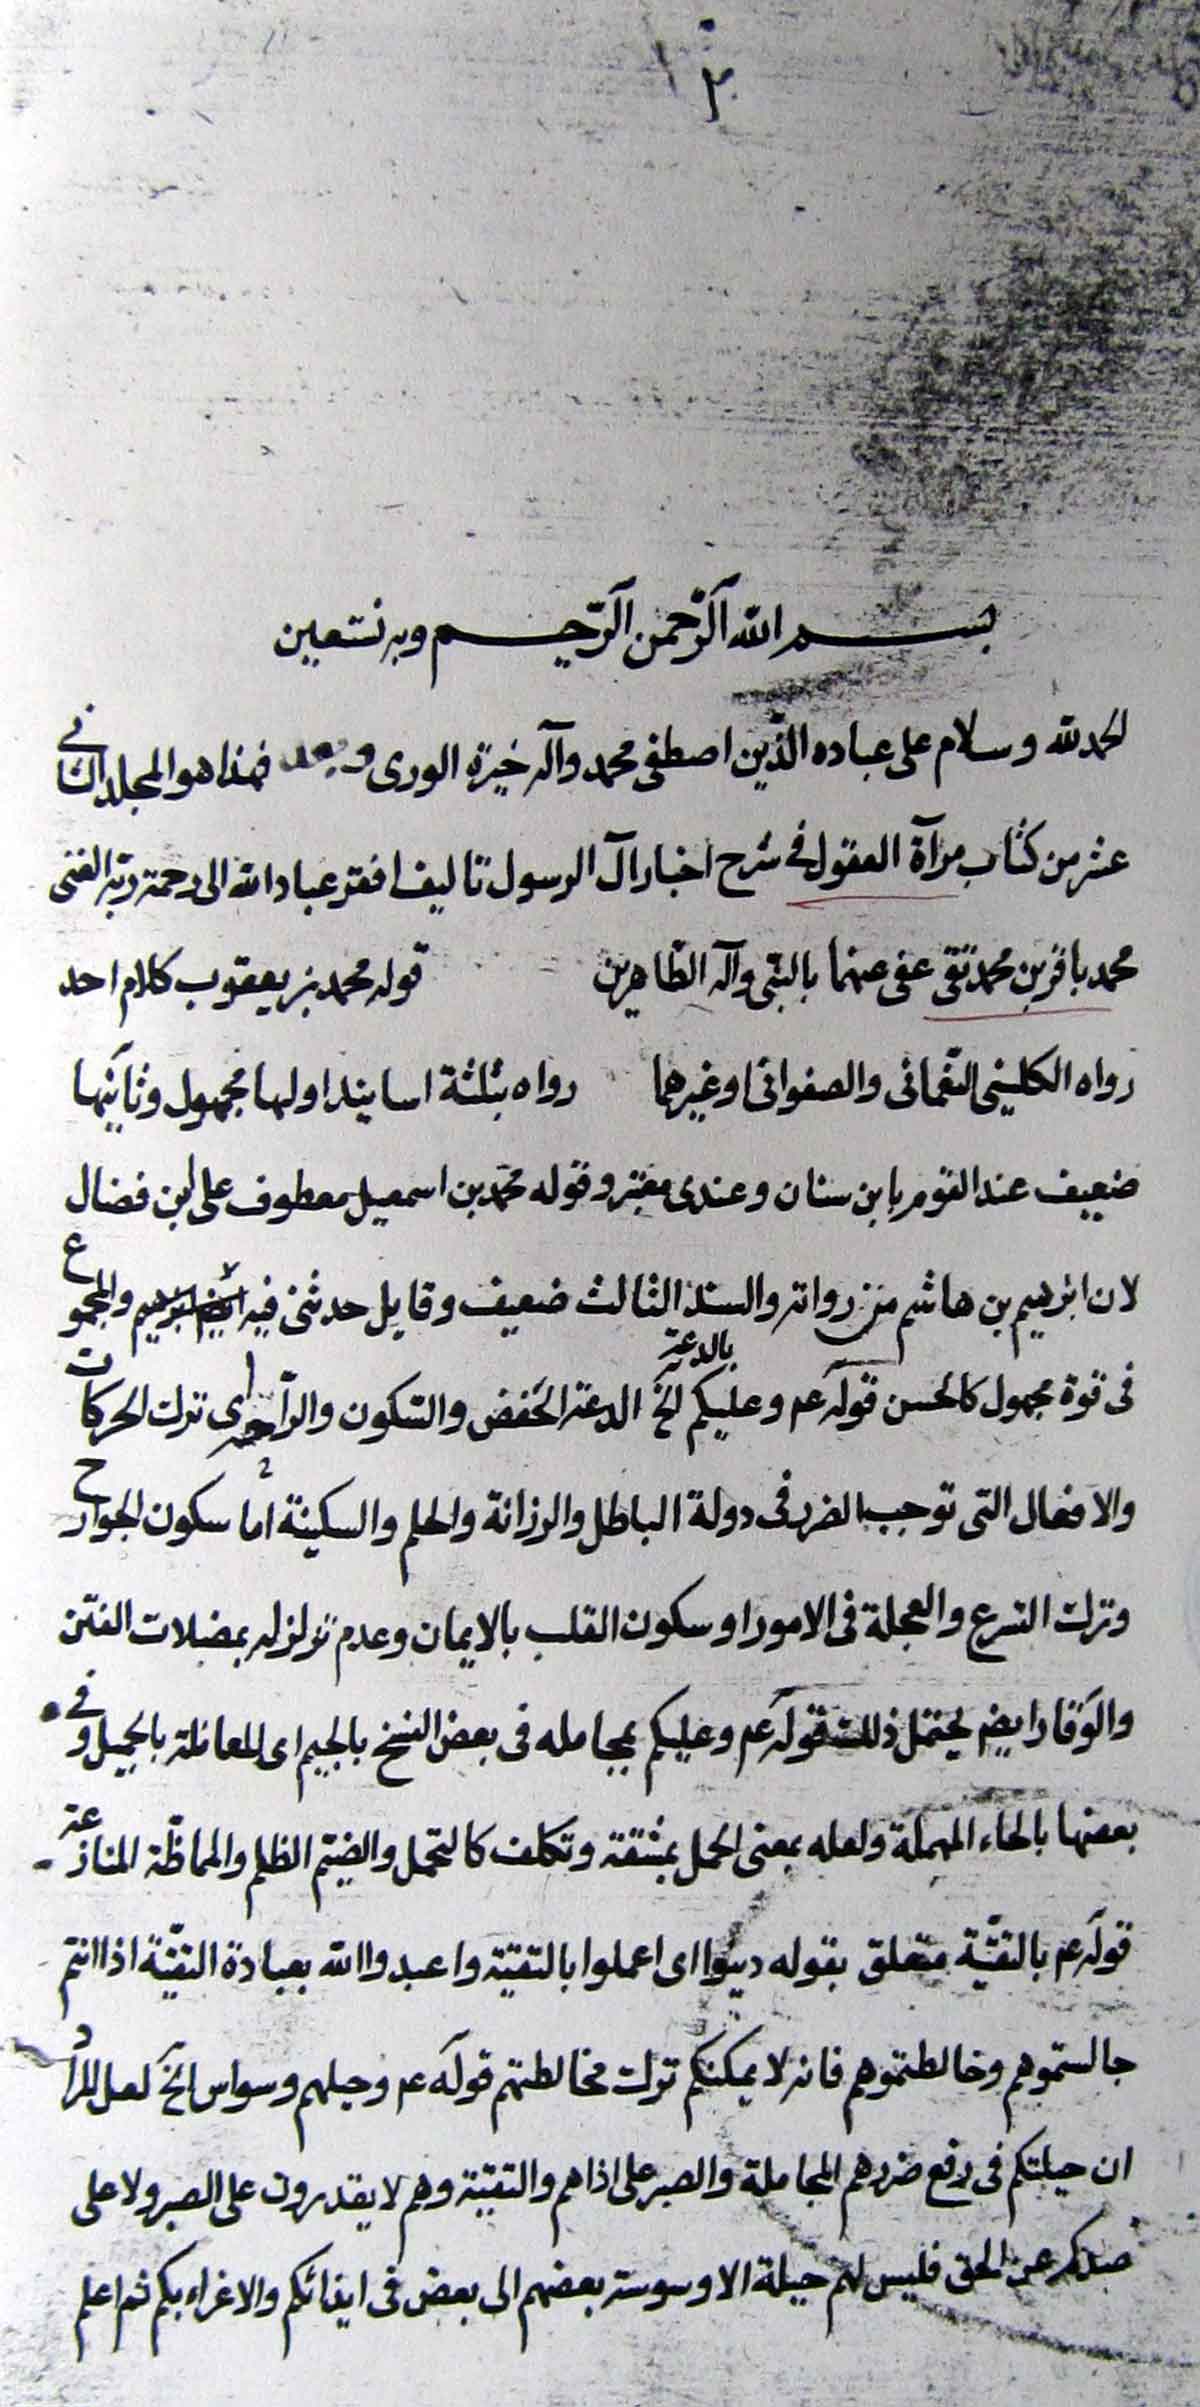 ٢
بسم الله الرحمن الرحيم وبه نستعين
الحمد لله وسلام على عباده الذين اصطفى محمد وآله خيرة الورى وبعد فهذا هو المجلد الثانى
عشر من كتاب مرآة العقول فى شرح اخبار آل الرسول تاليف افقر عباد الله الى رحمة ربه الغنى
محمد باقر بن محمد تقى عفى عنهما بالنبى وآله الطاهرين قوله محمد بن يعقوب كلام احد
رواه الكلينى النعمانى والصفوانى او غيرهما رواه بثلثة اسانيد اولها مجهول وثانيها
ضعيف عند القوم بابن سنان وعندى معتبر وقوله محمد بن اسمعيل معطوف على ابن فضال
لان ابرهيم بن هاشم من رواته والسند الثالث ضعيف وقايل حدثنى فيه ابرهيم والمجموع
فى قوة مجهول كالحسن قوله عم وعليكم بالدعة الخ الدعة الخفض والسكون والراحة اى ترك الحركات
والافعال التى توجب الضرر فى دولة الباطل والرزانة والحلم والسكينة اما سكون الجوارح
وترك التسرع والعجلة فى الامور او سكون القلب بالايمان وعدم تزلزله بمضلات الفتن
والوقار ايضم يحتمل ذلك قوله عم وعليكم بمجامله فى بعض النسخ بالجيم اى المعاملة بالجميل وفى
بعضها بالحاء المهملة ولعله بمعنى الحمل بمشقة وتكلف كالتحمل والضيم الظلم والمماظة المنازعة
قوله عم بالتقية متعلق بقوله دينوا اى اعملوا بالتقية واعبدوا الله بعبادة التقية اذا انتم
جالستموهم وخالطتموهم فانه لا يمكنكم ترك مخالطتهم قوله عم وحيلهم وسواس الخ لعل المراد
ان حيلتكم فى رفع ضررهم المجاملة والصبر على اذاهم والتقية وهم لا يقدرون على الصبر ولا على
صدكم عن الحق فليس لهم حيلة الا وسوسة بعضهم الى بعض فى ايذائكم والاغراء بكم ثم اعلم